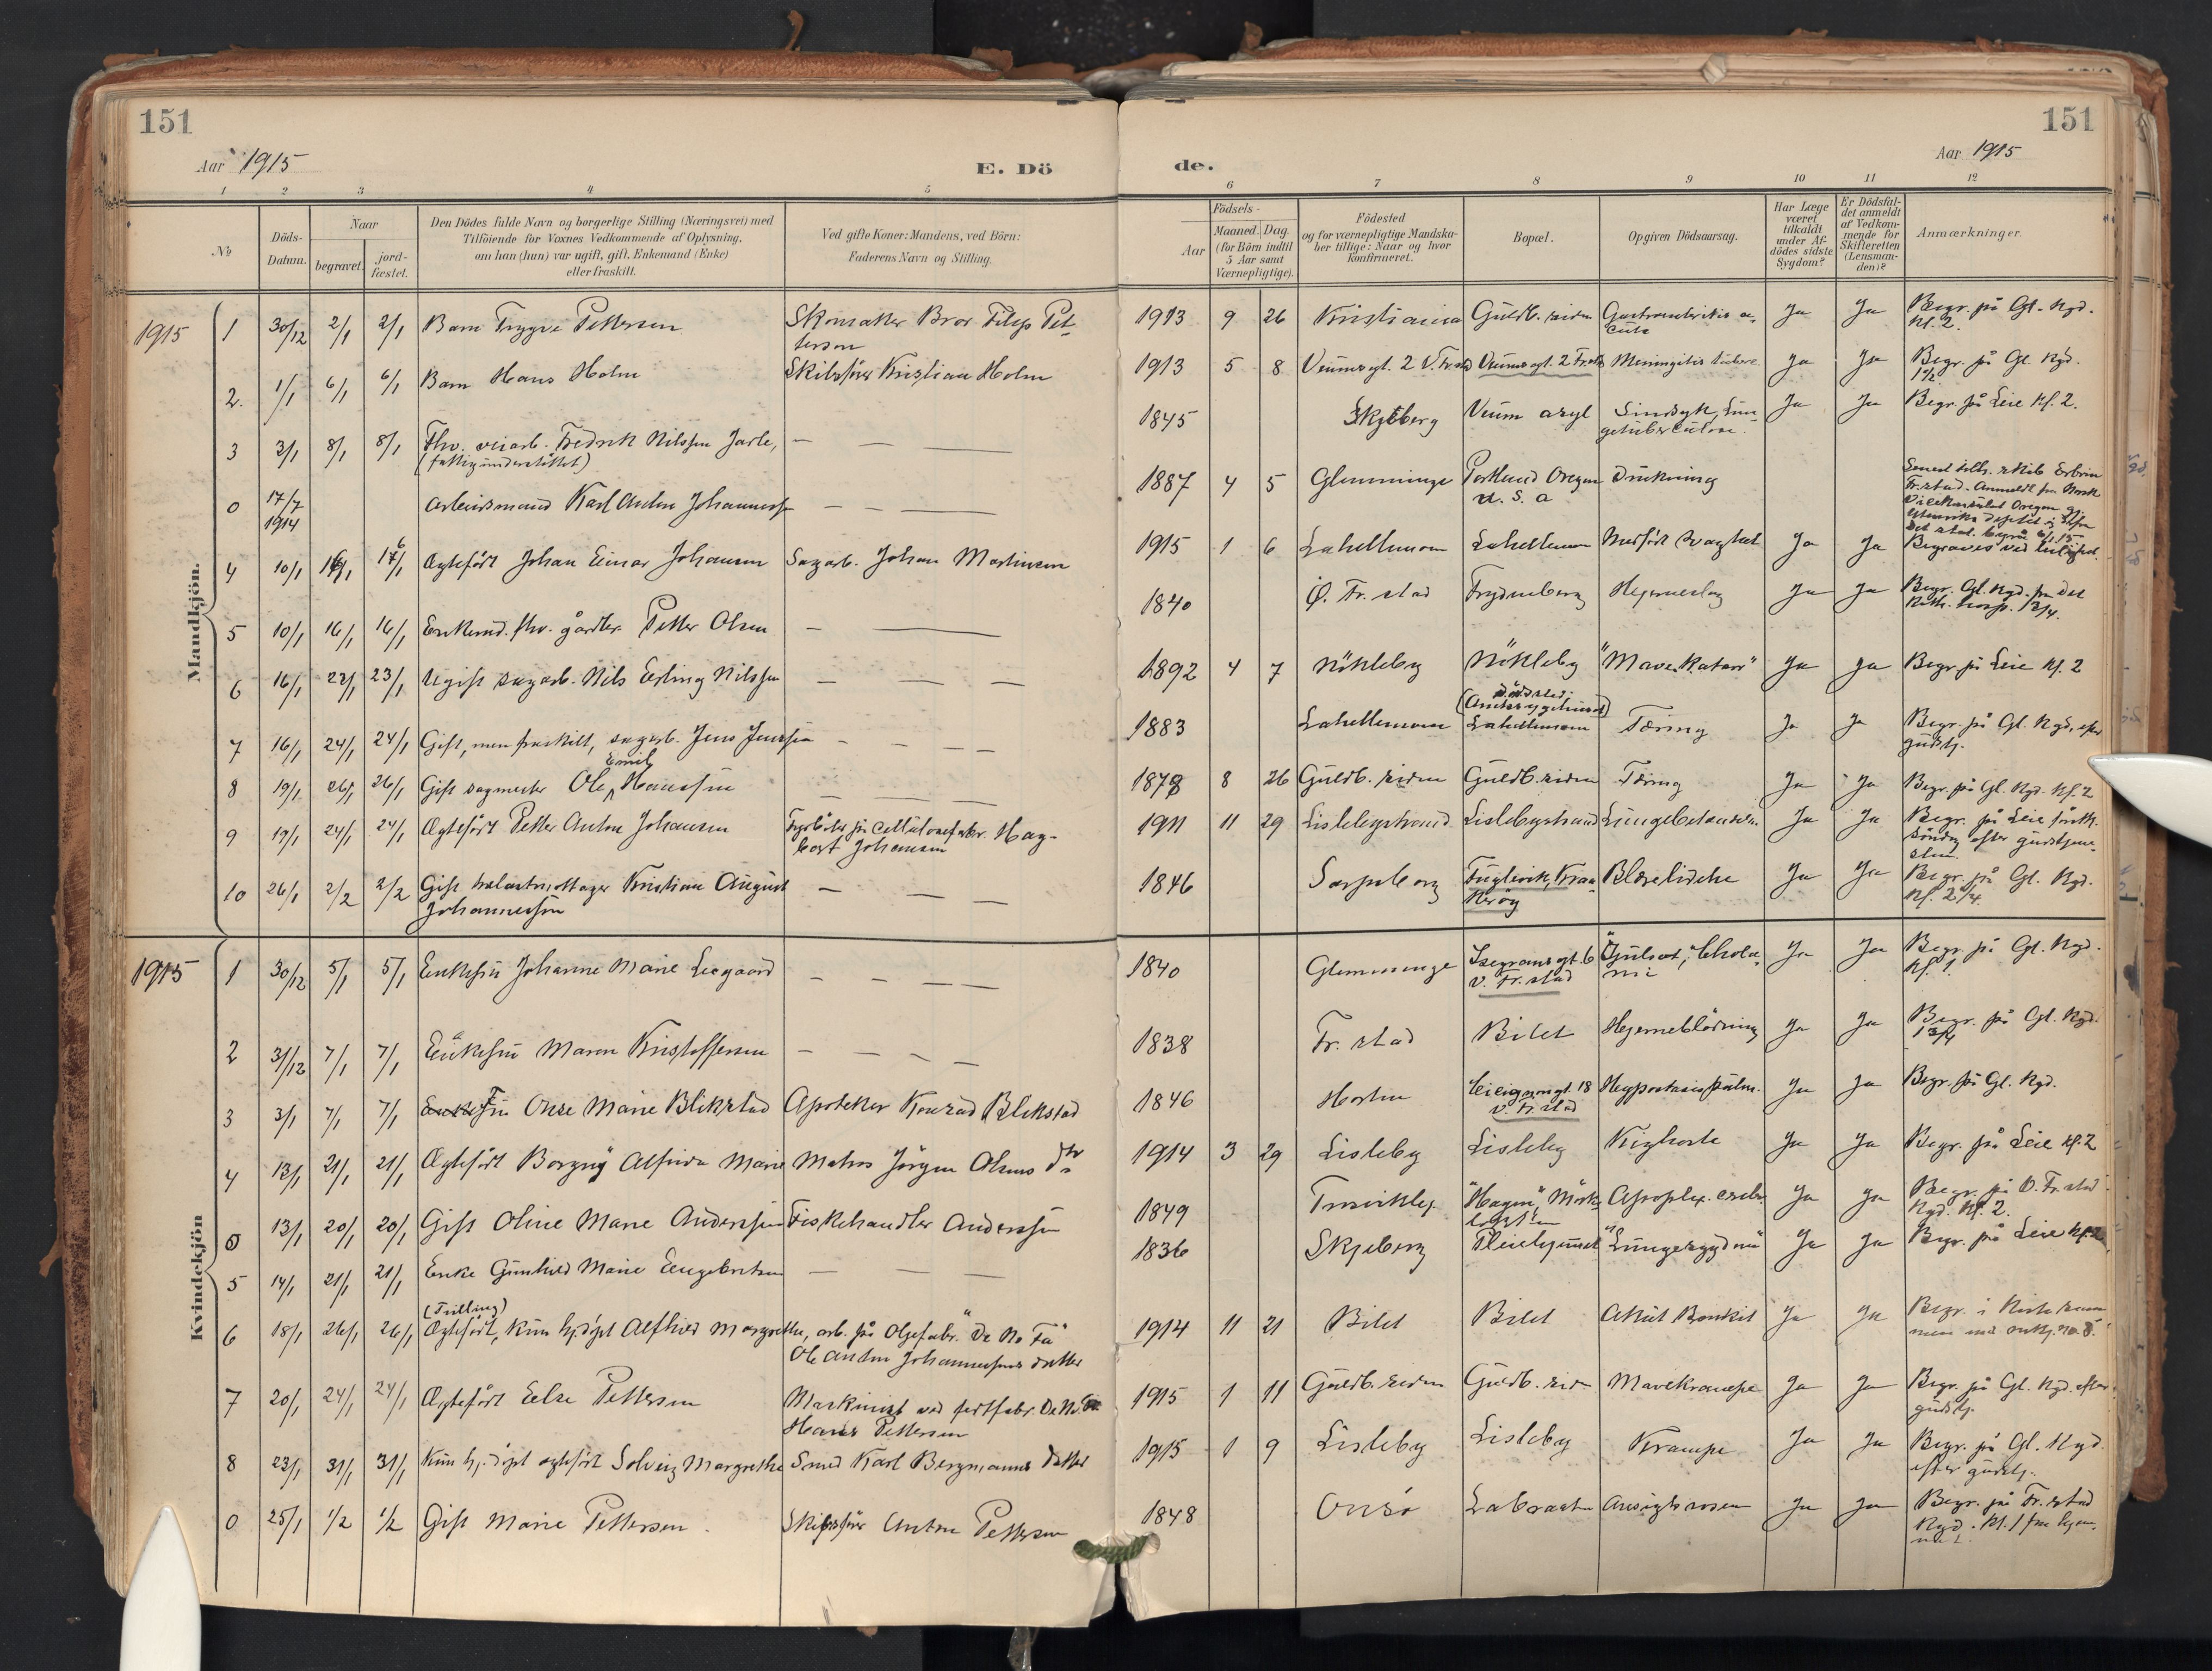 151
151
Aar 1915
E. Dö
de.
Aar 1915
1 2 3 4 5 6 7 8 9 10 11 12
No
Döds-
Datum.
Naar
begravet.
jord-
fæstet.
Den Dödes fulde Navn og borgerlige Stilling (Næringsvei) med
Tilföiende for Voxnes Vedkommende af Oplysning,
om han (hun) var ugift, gift, Enkemand (Enke)
eller fraskilt.
Ved gifte Koner: Mandens, ved Börn:
Faderens Navn og Stilling.
Födsels-
Aar
Maaned. Dag.
(for Börn indtil
5 Aar samt
Værnepligtige).
Födested
og for værnepligtige Mandska-
ber tillige: Naar og hvor
konfirmeret.
Bopæl.
Opgiven Dödsaarsag.
Har Læge
været
tilkaldt
under Af-
dödes sidste
Sygdom?
Er Dödsfal-
det anmeldt
af Vedkom-
mende for
Skifteretten
(Lensman-
den)?
Anmærkninger.
Mandkjön.
1915 1 30/12 2/1 2/1 Barn Trygve Pettersen Skomaker Bror Filip Pet-
tersen 1913 9 26 Kristiania Guldb. siden Gastroenteritis a-
cuta Ja Ja Begr. på Gl. Kgd.
Kl. 2.
2. 1/1 6/1 6/1 Barn Hans Holm Skibsförer Kristian Holm 1913 5 8 Veumsgt. 2 V. Fr.stad Veumsgt. 2 Fr.stad Meningitis tuberc. Ja Ja Begr. på Gl. Kgd.
1 1/2
3 2/1 8/1 8/1 Fhv. veiarb. Fredrik Nilssen Jarle,
(fattigunderstöttet) 1845 Skjeberg Veum asyl Sindsyk, Lun-
getuberculose. Ja Ja Begr. på Leie Kl. 2.
0 17/7
1914 Arbeidsmand Karl Anton Johannessen 1887 4 5 Glemminge Portland Oregon
U. S. A Drukning
4 10/1 16/1 17/1 Ægtefödt Johan Einar Johansen Sagarb. Johan Martinsen 1915 1 6 Lahellemoen Lahellemoen Medfödt svaghet Ja Ja Begraves ved leilighed.
5 10/1 16/1 16/1 Enkemd. fhv. gårdbr. Petter Olsen 1840 Ø. Fr. stad Frydenberg Hjerneslag Ja Ja Begr. Gl. Kgd. fra det
Kath. hosp.
6 16/1 23/1 23/1 Ugift sagarb. Nils Erling Nilssen 1892 4 7 Nökleby Nökleby "Mave Katarr" Ja Ja Begr. på Leie Kl. 2
7 16/1 24/1 24/1 Gift, men fraskilt, sagarb. Jens Jenssen 1883 Lahellemoen dödssted:
(Amtssygehuset)
Lahellemoen Tæring Ja Ja Begr. på Gl. Kgd. efter
gudstj.
8 19/1 26/1 26/1 Gift sagmester Ole Emil Hanssen 1878 8 26 Guldb. siden Guldb. siden Tæring Ja Ja Begr. på Gl. Kgd. Kl. 2
9 19/1 24/1 24/1 Ægtefödt Petter Anton Johansen Fyrböter på Cellulosefabr. Hag-
bart Johansen 1911 11 29 Lislebystrand Lislebystrand Lungebetændelse Ja Ja Begr. på Leie
söndag efter gudstjene-
sten.
10 26/1 2/2 2/2 Gift trælastmottager Kristian August
Johannessen 1846 Sarpsborg Fuglevik, Kraa-
keröy Blærelidelse Ja Ja Begr. på Gl. Kgd.
Kvindekjön
1915 1 30/12 5/1 5/1 Enkefru Johanne Marie Leegaard 1840 Glemminge Isegransgt. 6
V. Fr. stad "Gulsot," Cholæ-
mi Ja Ja Begr. på Gl. Kgd.
Kl. 1.
2 31/12 7/1 7/1 Enkefru Maren Kristoffersen 1838 Fr. stad Bilet Hjerneblödning Ja Ja Begr. på Gl. Kgd.
3 3/1 7/1 7/1 Fru Onse Marie Blikstad Apoteker Konrad Blikstad 1846 Horten 18
V. Fr. stad Hypostasis pulm. Ja Ja Begr. på Gl. Kgd.
4 13/1 21/1 21/1 Ægtefödt Borgny Alfrida Marie Matros Jörgen Olsens dtr 1914 3 29 Lisleby Lisleby Kighoste Ja Ja Begr. på Leie Kl. 2
0 13/1 20/1 20/1 Gift Oline Marie Anderssen Fiskehandler Anderssen 1849 "Hagen", Apoplex. cerebr. Ja Ja Begr. på V. Fr. stad
Kgd. Kl. 2.
5 14/1 21/1 21/1 Enke Gunhild Marie Engebretsen 1836 Skjeberg Pleiehjemmet "Lungesygdom" Ja Ja Begr. på Leie Kl. 2
6 18/1 26/1 26/1 (Trilling)
Ægtefödt, kun hj.döpt Alfhild Margrethe, arb. på Oljefabr. "De No Fa"
Ole Anton Johannessens datter 1914 11 21 Bilet Bilet Akut Bronkit Ja Ja Begr. i Kiste sam-
men med
7 20/1 24/1 24/1 Ægtefödt Else Pettersen Maskinist ved fedtfabr. De No Fa
Hans Pettersen 1915 1 11 Guldb. siden Guldb. sid. Mavekrampe Ja Ja Begr. på Gl. Kgd. efter
gudstj.
8 23/1 31/1 31/1 Kun hj.döpt ægtefödt Solveig Margrethe Smed Karl Bergmanns datter 1915 1 9 Lisleby Lisleby Krampe Ja Ja Begr. på Gl. Kgd.
efter gudstj.
0 25/1 1/2 1/2 Gift Marie Pettersen. Skibsförer Anton Pettersen 1848 Onsö Labraaten Ansigtsrosen Ja Ja Begr. på Fr. stad
Kgd. Kl. 1 fra hjem-
met.